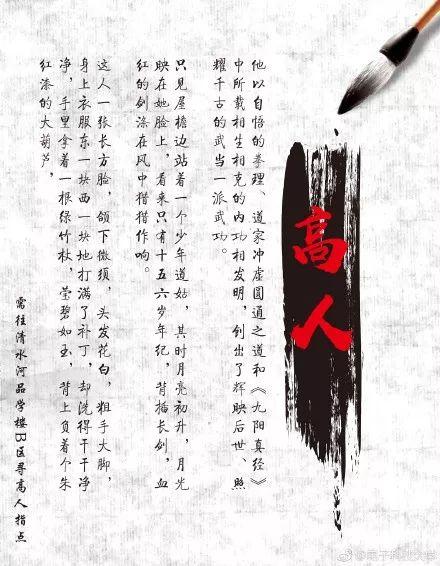 高人
他以自悟的拳理、道家冲虚圆通之道和《九阳真经》
中所载相生相克的内功相发明，创出了辉映后世、照
耀千古的武当一派武功。
只见屋檐边站着一个少年道姑，其时月亮初升，月光
映在她脸上，看来只有十五六岁年纪，背插长剑，血
红的剑涤在风中猎猎作响。
这人一张长方脸，颌下微须，头发花白，粗手大脚，
身上衣服东一块西一块地打满了补丁，却洗得干干净
净，手里拿着一根绿竹杖，莹碧如玉，背上负着个朱
红漆的大葫芦，
需往清水河品学楼B区寻高人指点
@电子科技大学